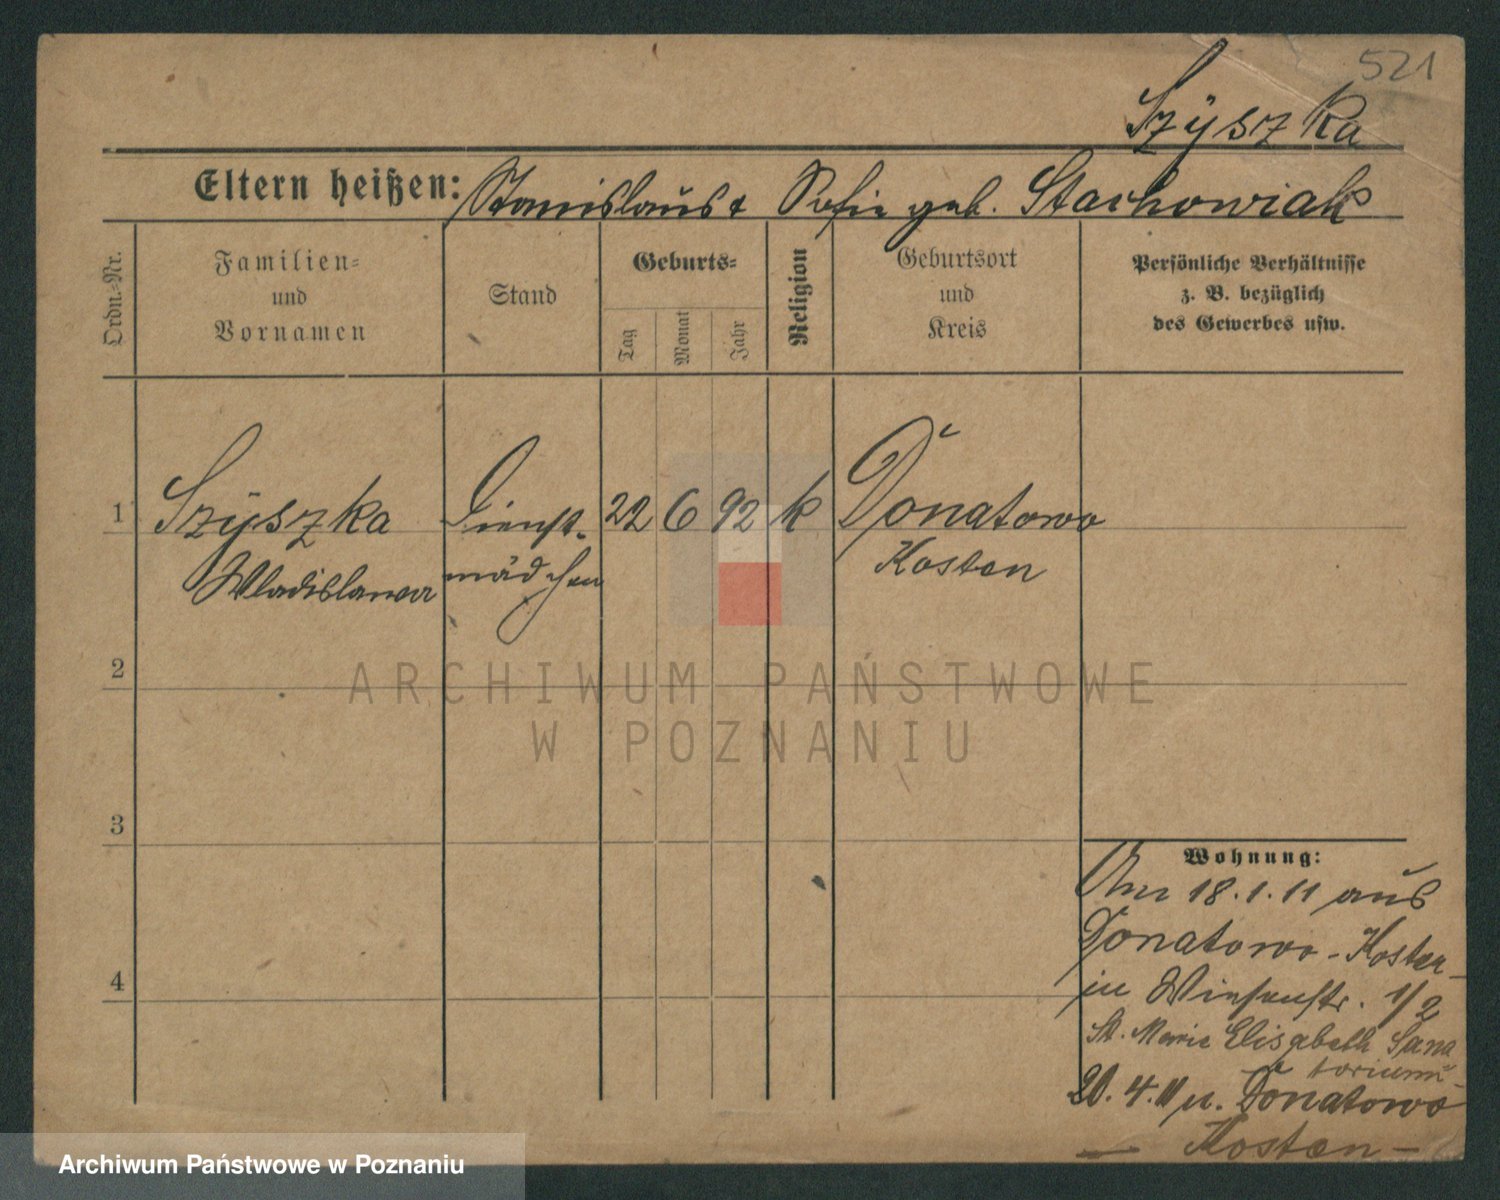 521
Szÿszka
Eltern heißen: Stanislaus & Sofie geb. Stachowiak
Ordn.-Nr.
Familien-
und
Vornamen
Stand
Geburts-
Tag
Monat
Jahr
Religion
Geburtsort
und
Kreis
Persönliche Verhältnisse
z. B. bezüglich
des Gewerbes usw.
1 Szÿszka Dienst- 22 6 92 k Donatowo
Wladislawa mädchen Kosten
2
3
4
Wohnung:
Am 18.1.11 aus
Donatowo-Kosten
in Wiesenstr. 1/2
St. Marie Elisabeth Sana
torium
20.4.11 n. Donatowo
Kosten
ARCHIWUM PAŃSTWOWE
W POZNANIU
Archiwum Państwowe w Poznaniu